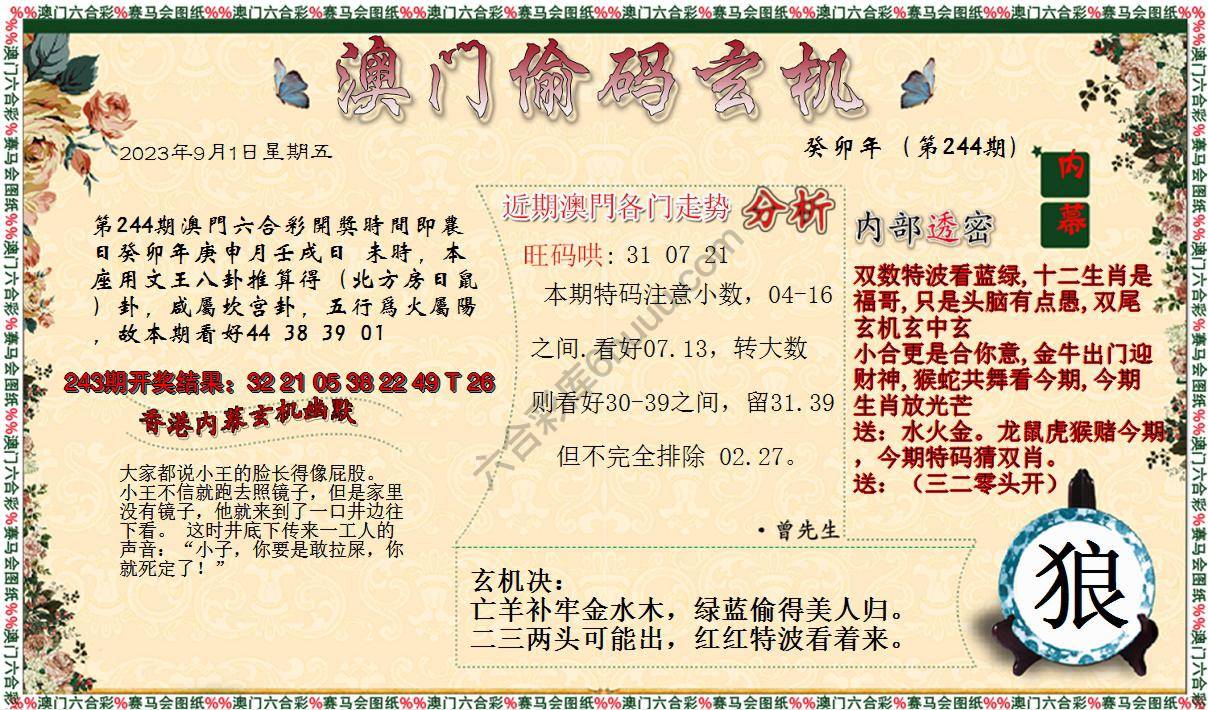 %%澳门六合彩%赛马会图纸%%澳门六合彩%赛马会图纸%%澳门六合彩%赛马会图纸%%澳门六合彩%赛马会图纸%%澳门六合彩%赛马会图纸%%澳门六合彩%赛马会图纸%%
澳门偷码玄机
2023年9月1日星期五
癸卯年（第244期）
内幕
第244期澳門六合彩開獎時間即農
日癸卯年庚申月壬戌日 未時，本
座用文王八卦推算得（北方房日鼠
）卦，咸屬坎宫卦，五行爲火屬陽
，故本期看好44 38 39 01
243期开奖结果：32 21 05 38 22 49 T 26
香港内幕玄机幽默
大家都说小王的脸长得像屁股。
小王不信就跑去照镜子，但是家里
没有镜子，他就来到了一口井边往
下看。 这时井底下传来一工人的
声音：“小子，你要是敢拉屎，你
就死定了！”
近期澳門各门走势 分析
旺码哄: 31 07 21
本期特码注意小数，04-16
之间.看好07.13，转大数
则看好30-39之间，留31.39
但不完全排除 02.27。
·曾先生
内部透密
双数特波看蓝绿,十二生肖是
福哥,只是头脑有点愚,双尾
玄机玄中玄
小合更是合你意,金牛出门迎
财神,猴蛇共舞看今期,今期
生肖放光芒
送：水火金。龙鼠虎猴赌今期
，今期特码猜双肖。
送：（三二零头开）
玄机决：
亡羊补牢金水木，绿蓝偷得美人归。
二三两头可能出，红红特波看着来。
狼
%%澳门六合彩%赛马会图纸%%澳门六合彩%赛马会图纸%%澳门六合彩%赛马会图纸%%澳门六合彩%赛马会图纸%%澳门六合彩%赛马会图纸%%澳门六合彩%赛马会图纸%%